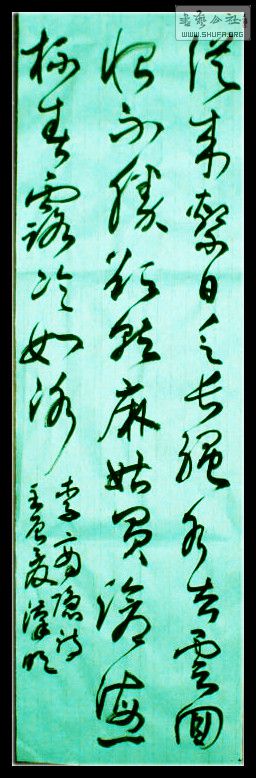 從來繫日乏長繩水去雲回
恨不勝欲就麻姑買滄海一
杯春露冷如冰
李商隱詩
壬辰夏
書藝公社
WWW.SHUFA.ORG